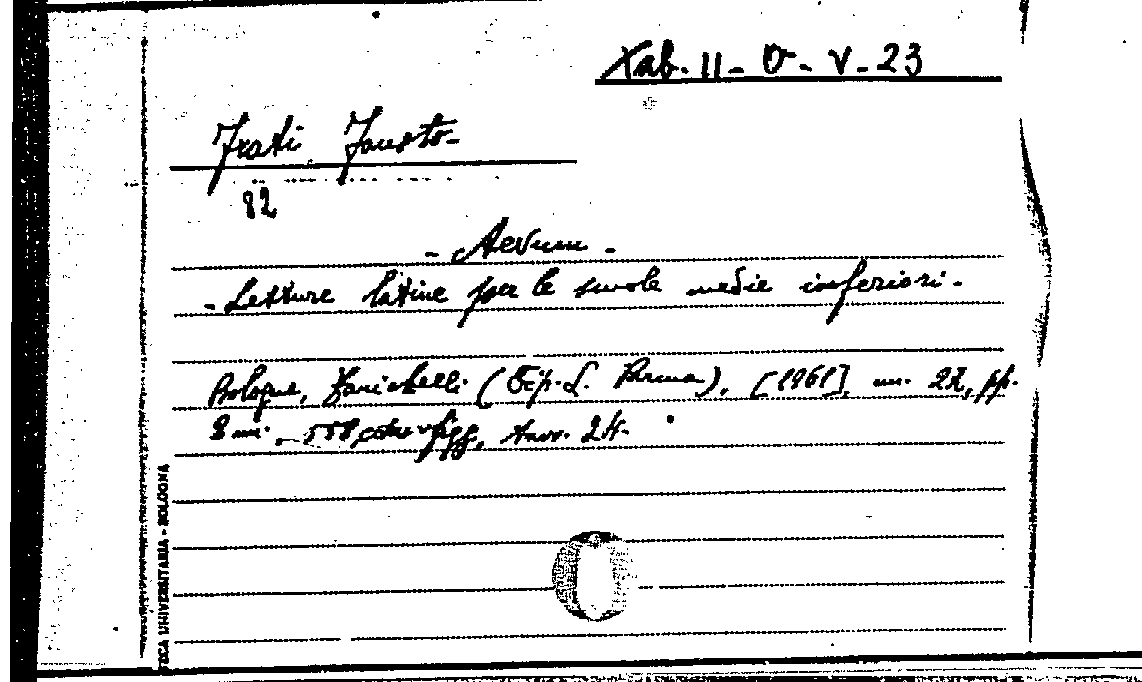 Tab. II - O - V - 23
Frati Fausto -
82
- Aevum -
- Letture latine per le scuole medie inferiori. -
Bologna, Zanichelli (Tip. L. Parma), [1961], in. 22, pp.
8 nn., 558, figg., tavv. 24.
TECA UNIVERSITARIA - BOLOGNA